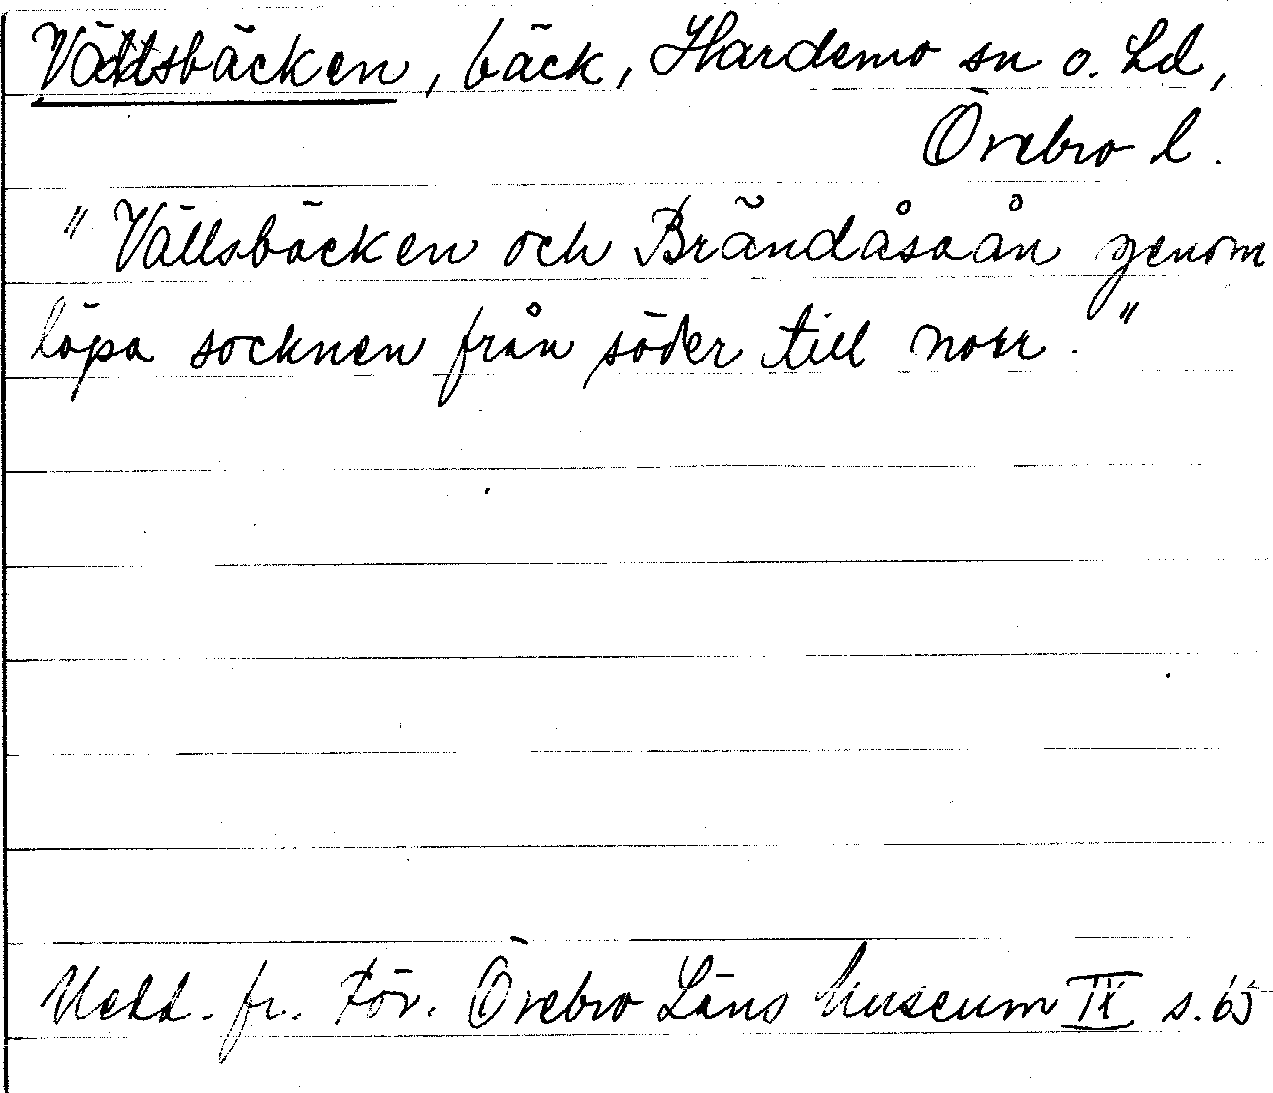 Vättsbäcken, bäck, Hardemo sn o. hd,
Örebro l.
"Vällsbäcken och Brändåsaån genom
löpa socknen från söder till norr."
Medd. fr. För. Örebro Läns Museum IX s. 65